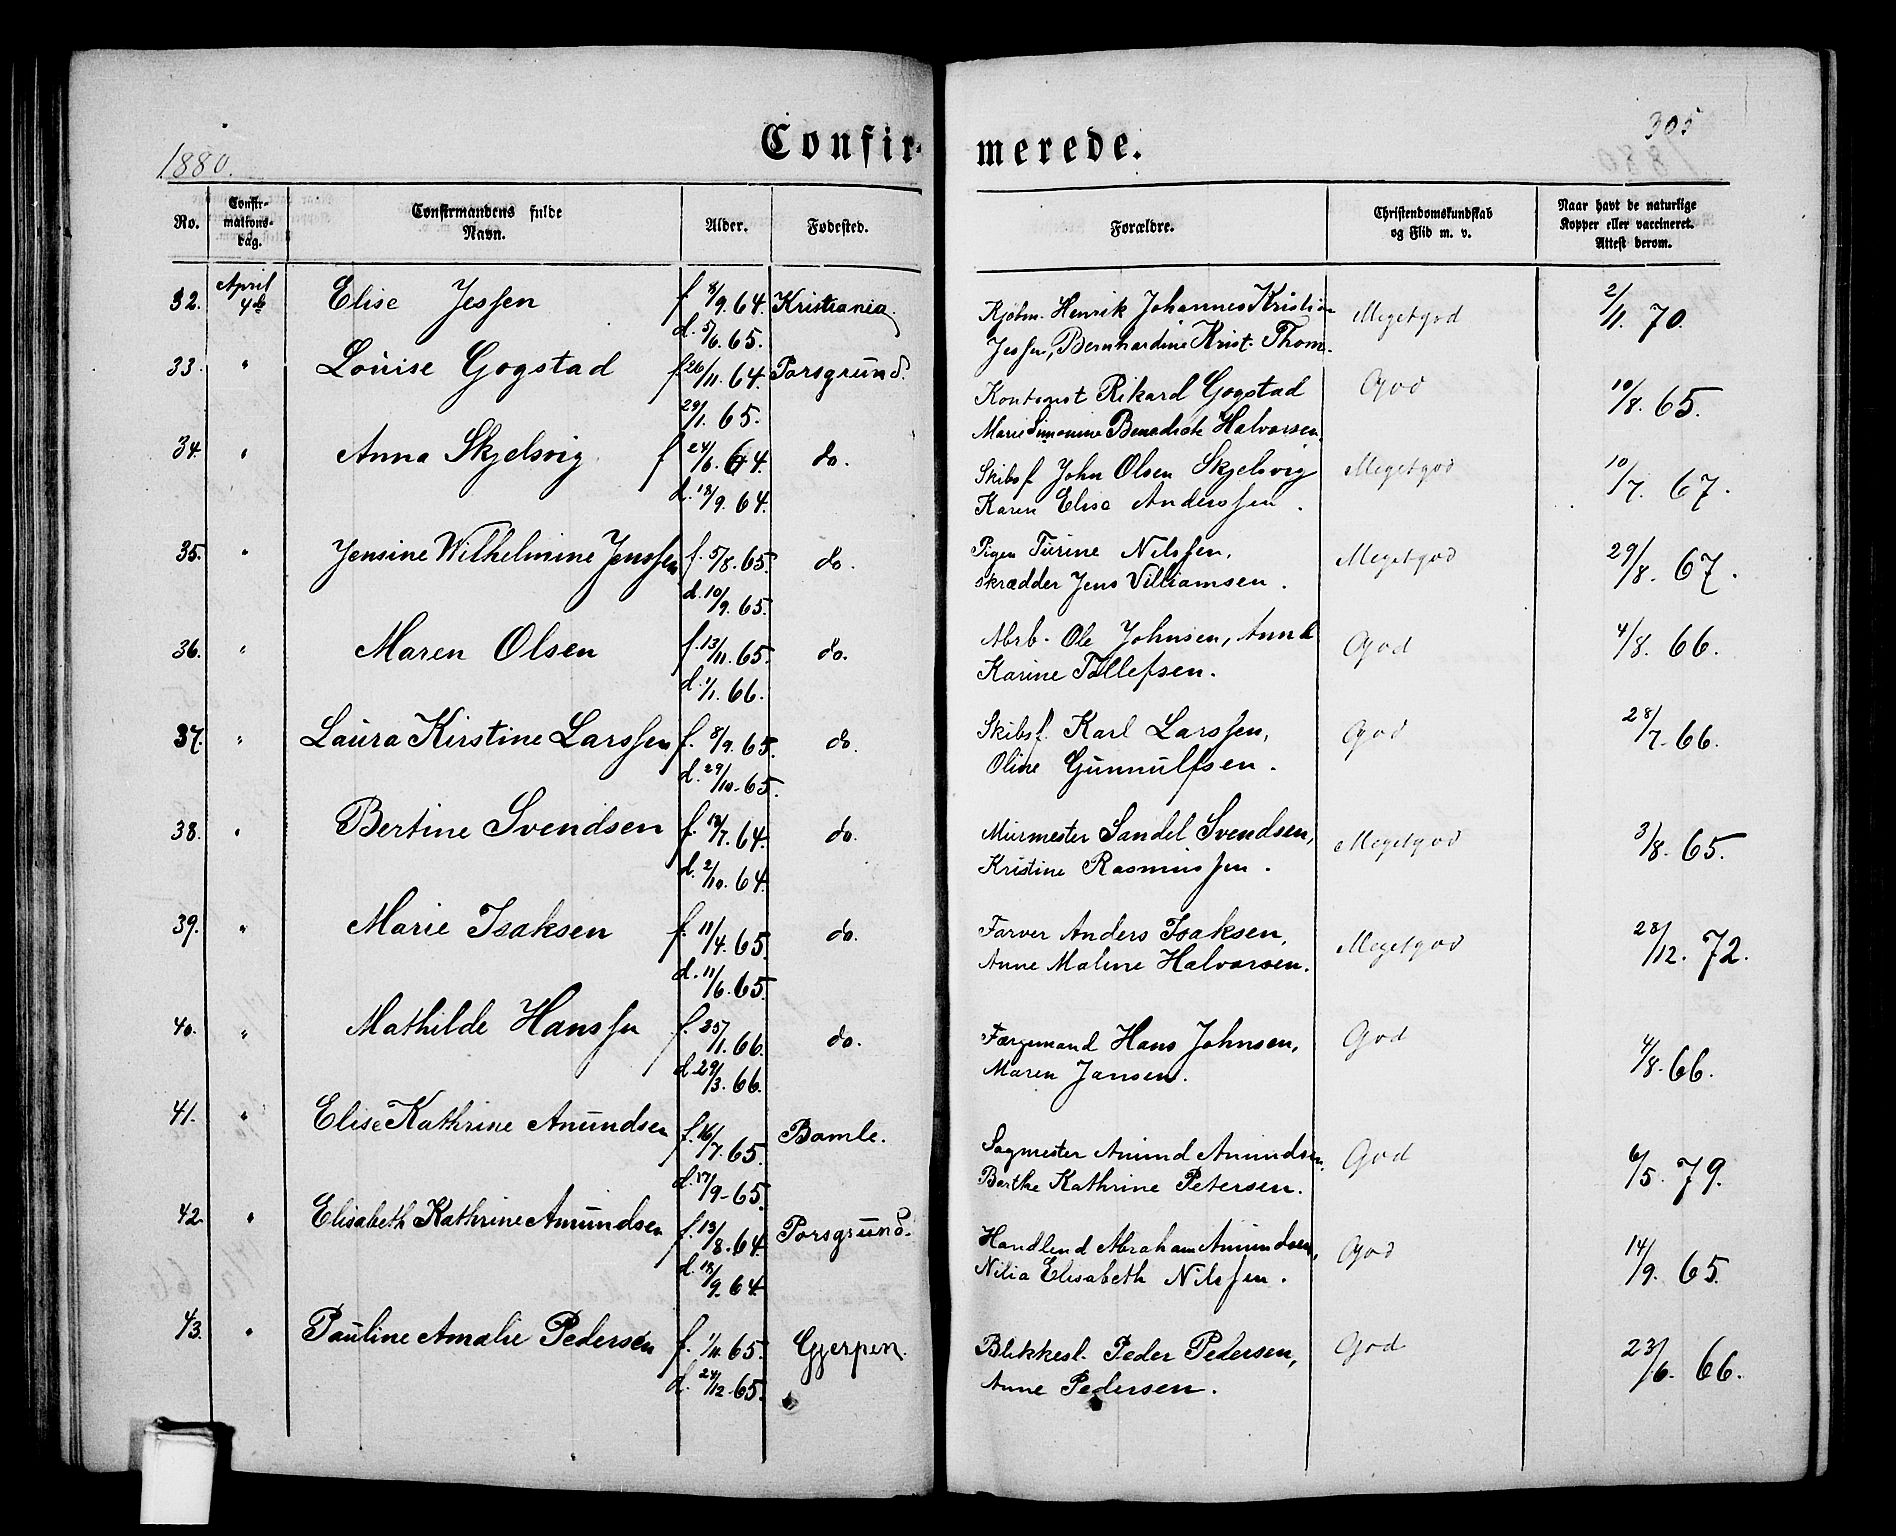 Confir-merede.
1880.
305
No.
Confir-mations-dag.
Confirmandens fulde Navn.
Alder.
Fødested.
Forældre.
Christendomskundskab og Flid m. v.
Naar havt de naturlige Kopper eller vaccineret. Attest derom.
32. April 4de Elise Jessen f. 8/9. 64. Kristiania. Kjøbm. Henrik Johannes Kristian Megetgod 2/11. 70.
d. 5/6. 65. Jessen, Bernhardine Krist. Thom.
33. " Louise Gogstad f. 26/11. 64. Porsgrund. Kontorist Rikard Gogstad God 10/8. 65.
29/1. 65. Marie Simonine Benedicte Halvorsen.
34. " Anna Skjelsvig f 24/6. 64. do. Skibsf. John Olsen Skjelsvig Megetgod 10/7. 67.
d. 18/9. 64. Karen Elise Anderssen.
35. " Jensine Wilhelmine Jenssen f. 5/8. 65. do. Pigen Turine Nilssen, Megetgod 29/8. 67.
d. 10/9. 65. Skrædder Jens Villiamsen.
36. " Maren Olsen f. 13/11. 65. do. Abrb. Ole Johnsen, Anne God 4/8. 66.
d. 1/1. 66. Karine Tollefsen.
37. " Laura Kirstine Larssen f. 8/9. 65. do. Skibsf. Karl Larssen, God 28/7. 66.
d. 29/10. 65. Oline Gunnulfsen.
38. " Bertine Svendsen f. 18/7. 64. do. Murmester Sandel Svendsen, Megetgod 3/8. 65.
d. 2/10. 64. Kristine Rasmussen.
39. " Marie Isaksen f. 11/4. 65. do. Farver Anders Isaksen, Megetgod 28/12. 72.
d. 11/6. 65. Anne Malene Halvorsen.
40. " Mathilde Hanssen f. 25/1. 66. do. Færgemand Hans Johnsen, God 4/8. 66.
d. 29/3. 66. Maren Jansen.
41. " Elise Kathrine Anundsen f. 16/7. 65. Bamle. Sagmester Anund Anundsen, God 6/5. 79.
d. 17/9. 65. Berthe Kathrine Petersen.
42. " Elisabeth Kathrine Amundsen f. 13/8. 64. Porsgrund. Handlend Abraham Amundsen, God 14/9. 65.
d. 18/9. 64 Nilia Elisabeth Nilssen.
43. " Pauline Amalie Pedersen f. 1/11. 65. Gjerpen. Blikkesl. Peder Pedersen, God 23/6. 66.
d. 24/12. 65. Anne Pedersen.